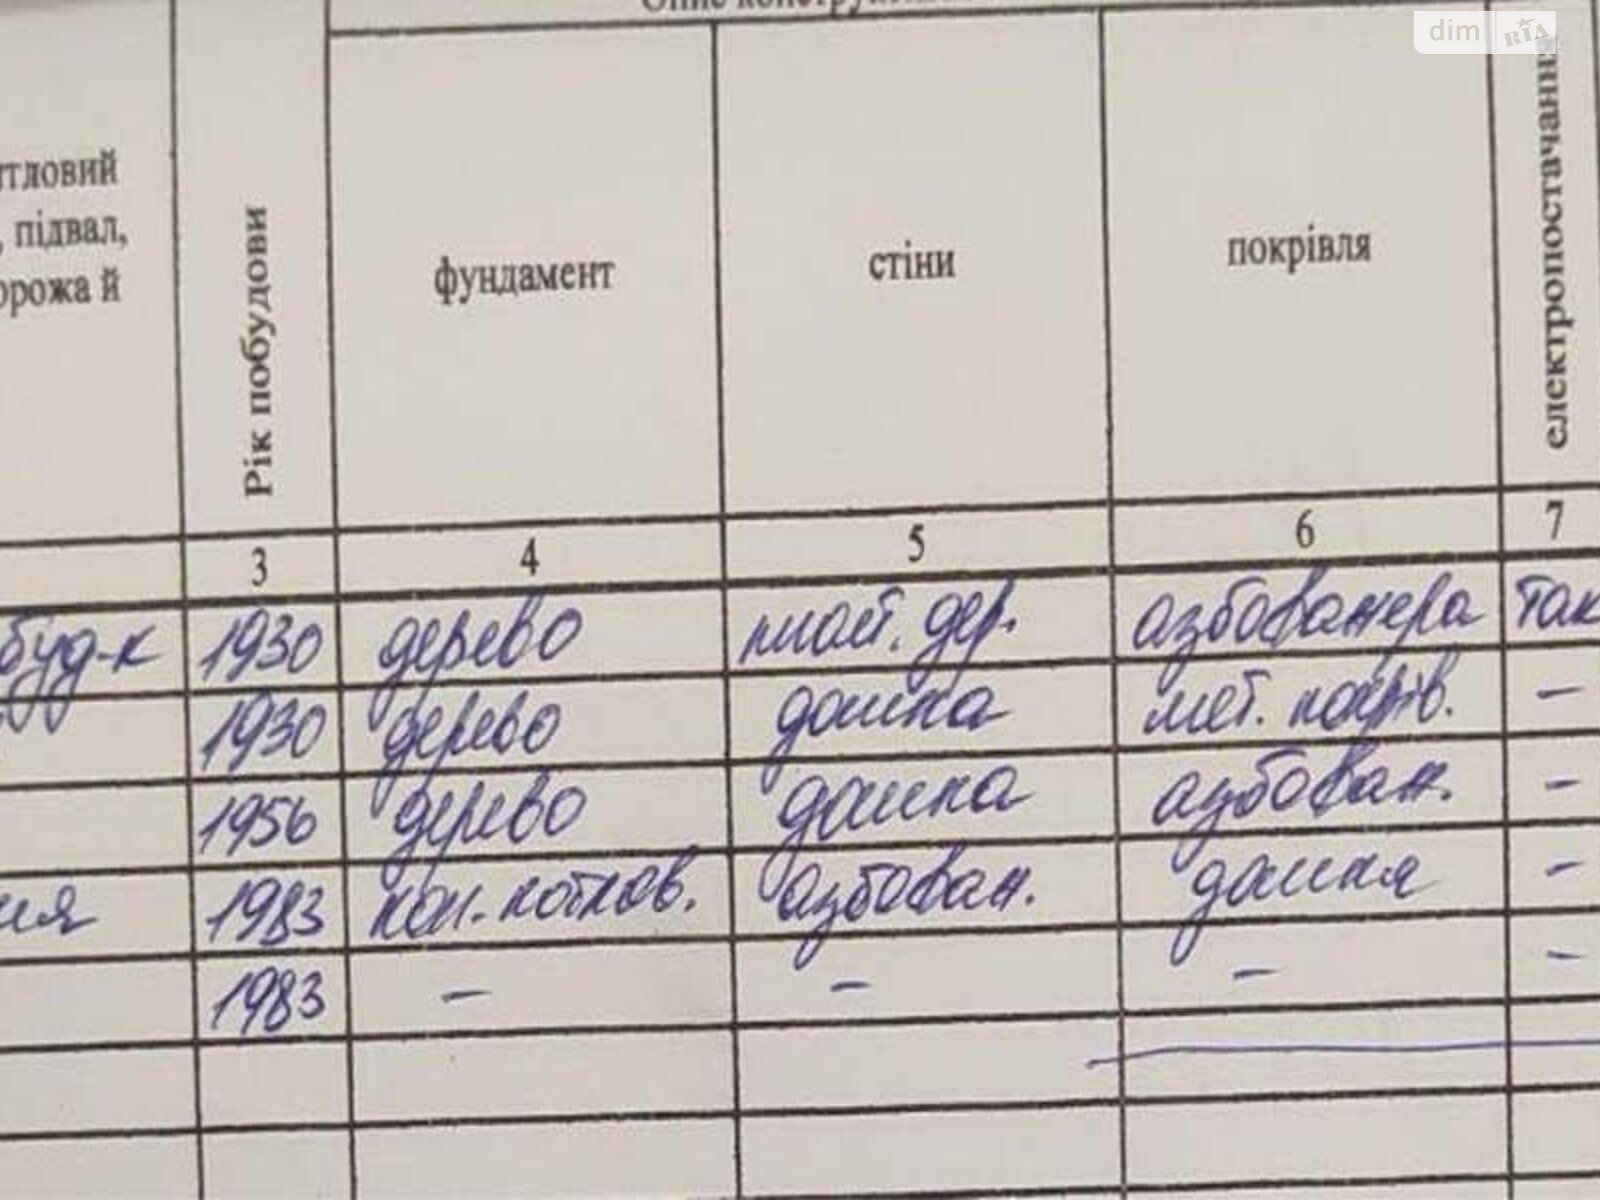 dim RIA
Опис конструк
итловий
, підвал,
орожа й
Рік побудови
фундамент
стіни
покрівля
електропостачання
3 4 5 6 7
буд-к 1930 дерево пласт. дер. азбофанера так
1930 дерево дошка мет. покрів. -
1956 дерево дошка азбофан. -
ня 1983 дошка азбофан. -
1983 - - - -